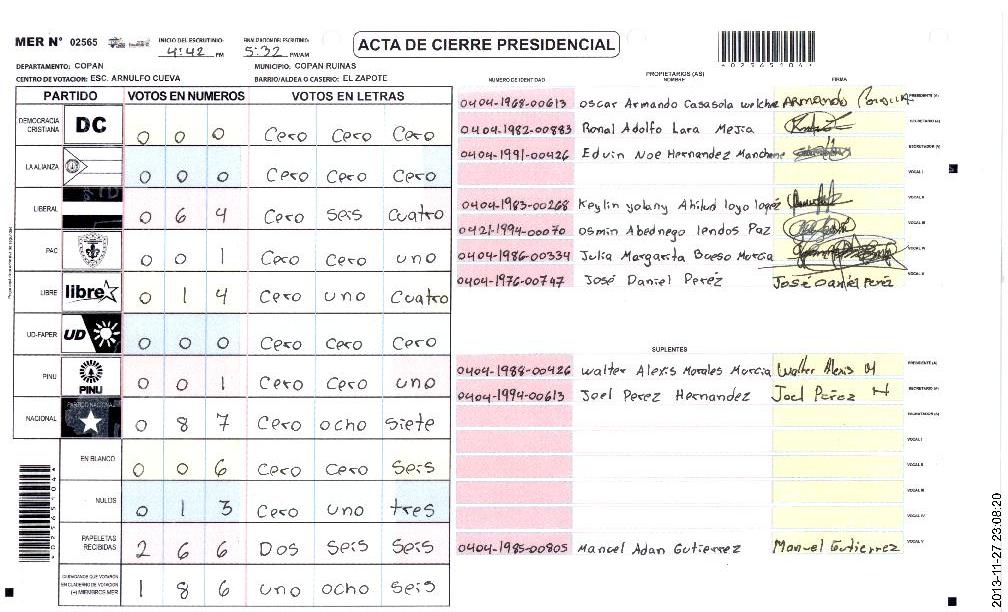 MER N° 02565
INICIO DEL ESCRUTINIO: 4:42 PM
FINALIZACION DEL ESCRUTINIO: 5:32 PM/AM
ACTA DE CIERRE PRESIDENCIAL
DEPARTAMENTO: COPAN
MUNICIPIO: COPAN RUINAS
CENTRO DE VOTACION: ESC. ARNULFO CUEVA
BARRIO/ALDEA O CASERIO: EL ZAPOTE
PARTIDO VOTOS EN NUMEROS VOTOS EN LETRAS
DEMOCRACIA CRISTIANA DC 0 0 0 Cero Cero Cero
LA ALIANZA 0 0 0 Cero Cero Cero
LIBERAL 0 6 4 Cero seis cuatro
PAC 0 0 1 Cero Cero uno
LIBRE libre 0 1 4 Cero uno Cuatro
UD-FAPER UD 0 0 0 Cero Cero Cero
PINU PINU 0 0 1 Cero Cero uno
NACIONAL PARTIDO NACIONAL 0 8 7 Cero ocho siete
EN BLANCO 0 0 6 Cero Cero Seis
NULOS 0 1 3 Cero uno tres
PAPELETAS RECIBIDAS 2 6 6 Dos Seis Seis
CIUDADANOS QUE VOTARON EN CUADERNO DE VOTACION (+) MIEMBROS MER 1 8 6 uno ocho Seis
*02565104*
NUMERO DE IDENTIDAD PROPIETARIOS (AS) NOMBRE FIRMA
0404-1968-00613 oscar Armando Casasola welche ARMANDO PRESIDENTE (A)
0404-1982-00883 Ronal Adolfo Lara Mejia SECRETARIO (A)
0404-1991-00426 Edvin Noe Hernandez ESCRUTADOR (A)
VOCAL I
0404-1983-00268 Keylin yolany loyo lopez VOCAL II
0421-1994-00070 osmin Abednego lendos Paz VOCAL III
0404-1986-00334 Julia Margarita Bueso Murcia VOCAL IV
0404-1976-00747 José Daniel Perez José Daniel Perez VOCAL V
SUPLENTES
0404-1988-00426 walter Alexis Morales Murcia Walter Alexis M PRESIDENTE (A)
0404-1994-00613 Joel Perez Hernandez Joel Perez H SECRETARIO (A)
ESCRUTADOR (A)
VOCAL I
VOCAL II
VOCAL III
VOCAL IV
0404-1985-00805 Manuel Adan Gutierrez Manuel Gutierrez VOCAL V
*02565104*
2013-11-27 23:08:20